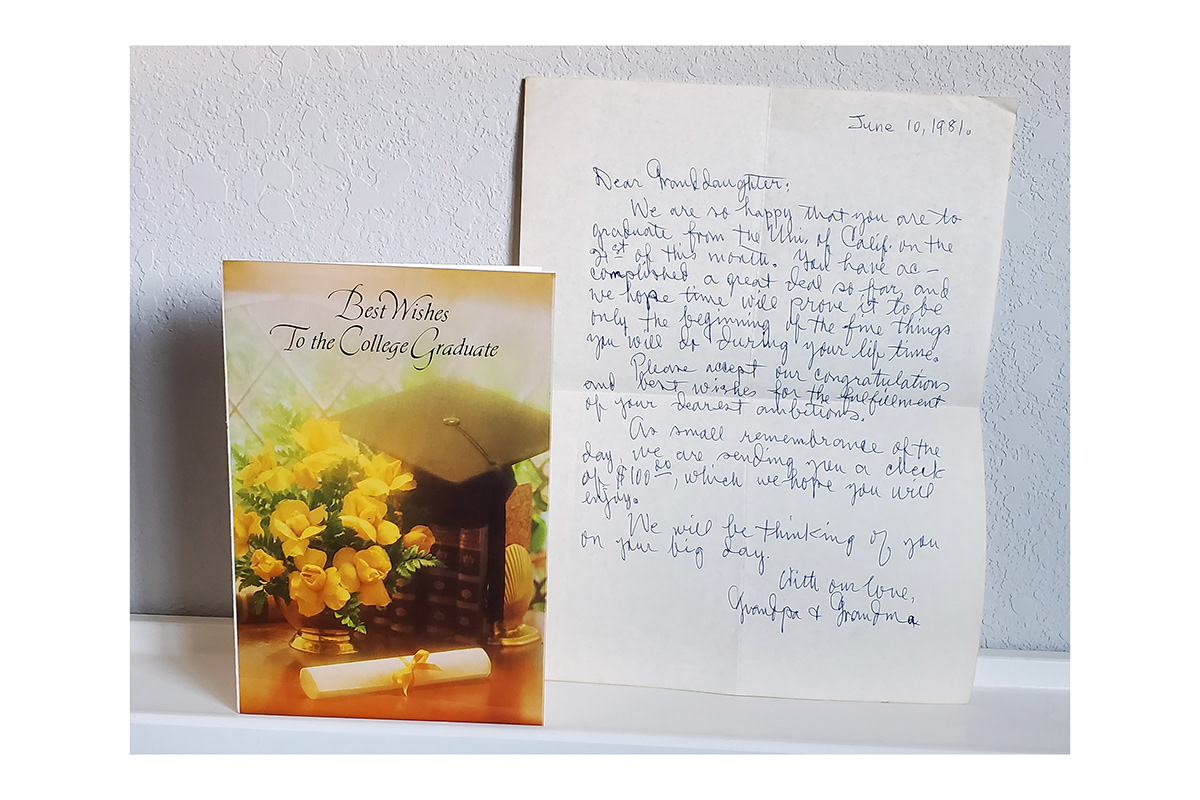 Best Wishes
To the College Graduate
June 10, 1981.
Dear Granddaughter:
We are so happy that you are to
graduate from the Uni. of Calif. on the
21st of this month. You have ac-
complished a great deal so far, and
we hope time will prove it to be
only the beginning of the fine things
you will do during your life time.
Please accept our congratulations
and best wishes for the fulfillment
of your dearest ambitions.
As small remembrance of the
day, we are sending you a check
of $100.00, which we hope you will
enjoy.
We will be thinking of you
on your big day.
With our love,
Grandpa & Grandma